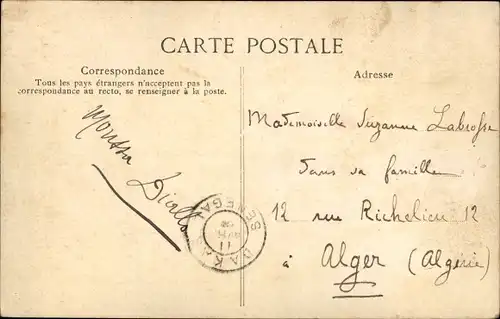 CARTE POSTALE
Correspondance
Tous les pays étrangers n'acceptent pas la
correspondance au recto, se renseigner à la poste.
Moussa
Diallo
Adresse
Mademoiselle Suzanne Labrosse
dans sa famille
12 rue Richelieu 12
à Alger (Algérie)
DAKAR
SENEGAL
11